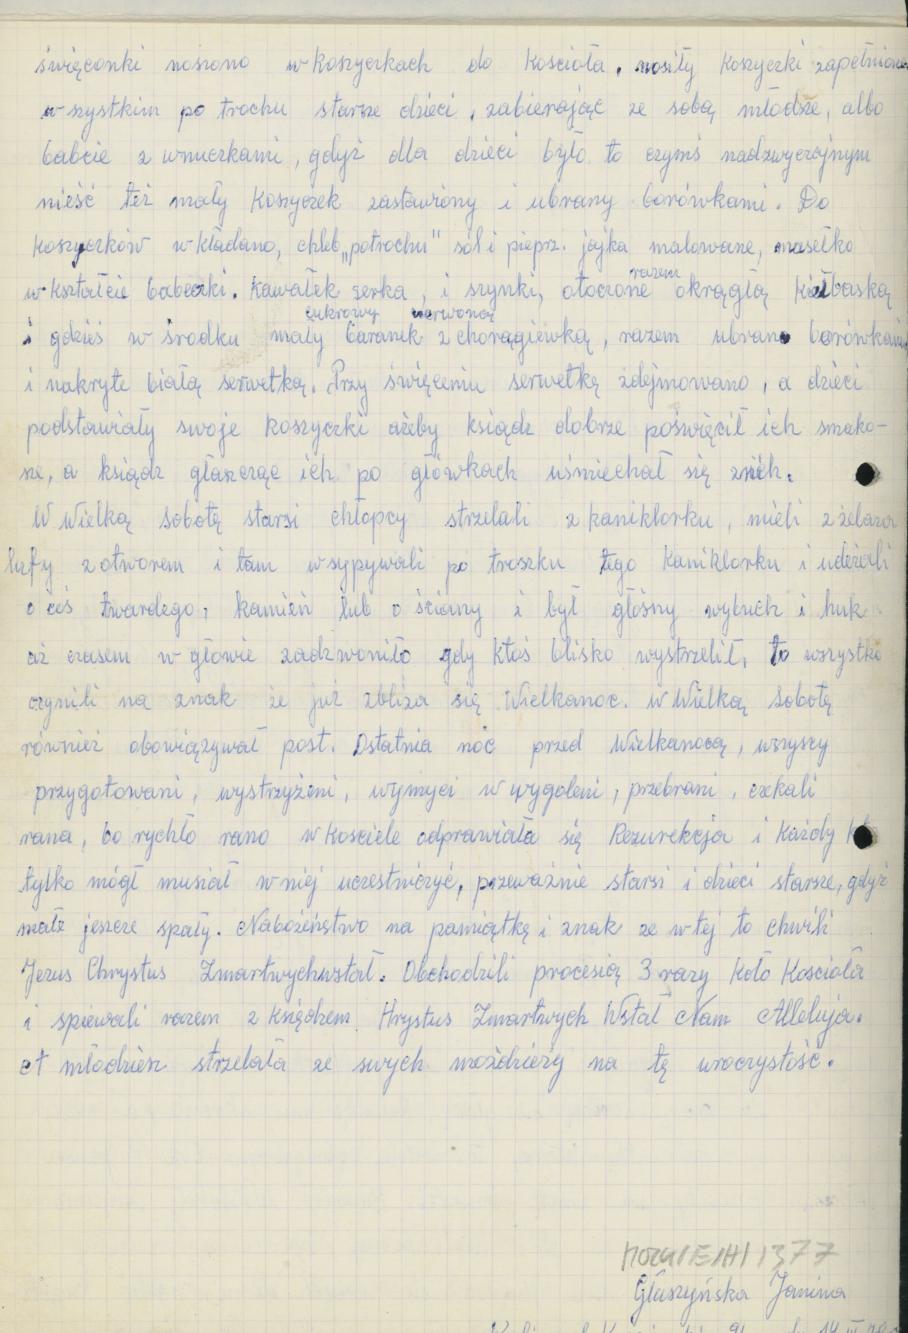 święconki noszono w koszyczkach do kościoła. nosiły koszyczki zapełnione
wszystkim po trochu starsze dzieci, zabierając ze sobą młodsze, albo
babcie z wnuczkami, gdyż dla dzieci było to czymś nadzwyczajnym
nieść też mały koszyczek zastawiony i ubrany borówkami. Do
koszyczków wkładano, chleb „potrochu" sól i pieprz. jajka malowane, masełko
w kształcie babeczki. kawałek serka, i szynki, otoczone razem okrągłą kiełbaską
i gdzieś w środku mały cukrowy baranek z czerwoną chorągiewką, razem ubrane borówkami
i nakryte białą serwetką. Przy święceniu serwetką zdejmowano, a dzieci
podstawiały swoje koszyczki ażeby ksiądz dobrze poświęcił ich smako-
sze, a ksiądz głaszcząc ich po główkach uśmiechał się z nich.
W Wielką sobotę starsi chłopcy strzelali z kaniklorku, mieli z żelaza
lufy z otworem i tam wsypywali po troszku tego kaniklorku i udeżali
o coś twardego, kamień lub o ściany i był głośny wybuch i huk
aż czasem w głowie zadzwoniło gdy ktoś blisko wystrzelił, to wszystko
czynili na znak że już zbliża się Wielkanoc. w Wielką Sobotę
również obowiązywał post. Ostatnia noc przed Wielkanocą, wszyscy
przygotowani, wystrzyżeni, wymyci wygoleni, przebrani, czekali
rana, bo rychło rano w kościele odprawiała się Rezurekcja i każdy kto
tylko mógł musiał w niej uczestniczyć, przeważnie starsi i dzieci starsze, gdyż
małe jeszcze spały. Nabożeństwo na pamiątkę i znak ze w tej to chwili
Jezus Chrystus Zmartwychwstał. Obchodzili procesią 3 razy koło kościoła
i spiewali razem z księdzem Hrystus Zmartwych Wstał Nam Alleluja.
A młodziesz strzelała ze swych moździeży na tę uroczystość.
MOZN/E/H/1377
Głuszyńska Janina